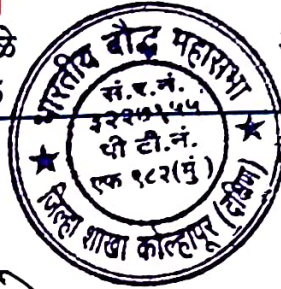 ळे
भारतीय बौद्ध महासभा
सं.ए.नं.
पी टी.नं.
एफ ९८२(मुं)
जिल्हा शाखा कोल्हापूर (दक्षिण)